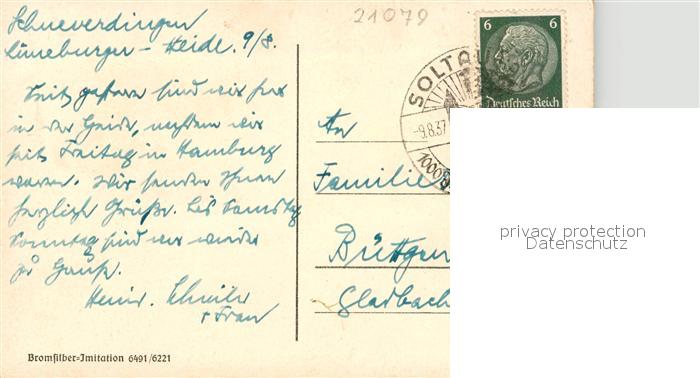 Schneverdingen
Lüneburger-Heide. 9/8.
Seit gestern sind wir hier
in der Heide, nachdem wir
seit Freitag in Hamburg
waren. Wir senden Ihnen
herzliche Grüße. Bis Samstag
Sonntag sind wir wieder
zu Hause.
Heinr.
u Frau
21079
SOLTAU
-9.8.37
1000
6 6
Deutsches Reich
An
Familie
Büttgen
Gladbach
privacy protection
Datenschutz
Bromsilber-Imitation 6491/6221